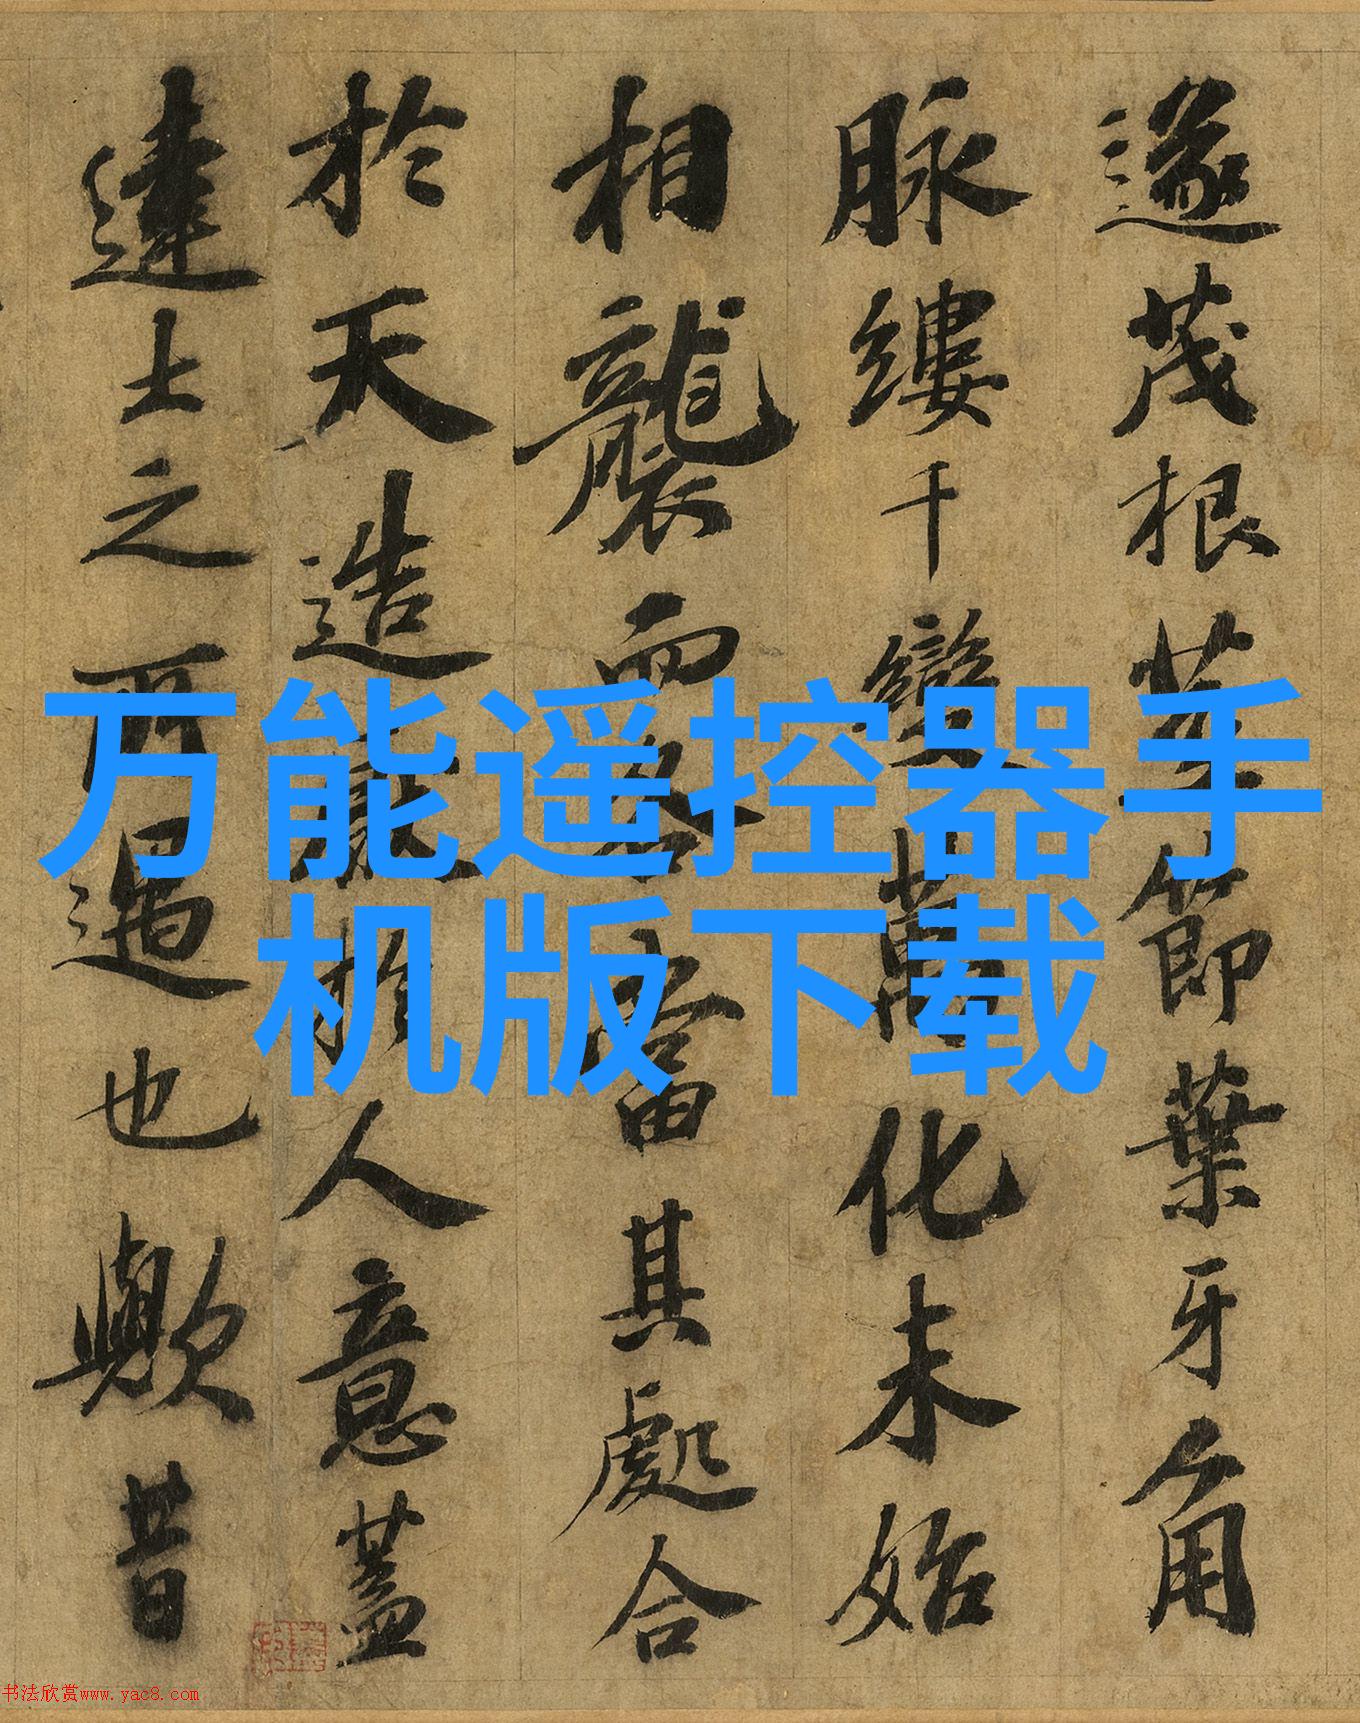 遂茂根莖節葉牙角
脉縷千變萬化未始
相襲而各當其處合
於天造厭於人意蓋
達士之所遇也歟昔
万能遥控器手
机版下载
书法欣赏www.yac8.com